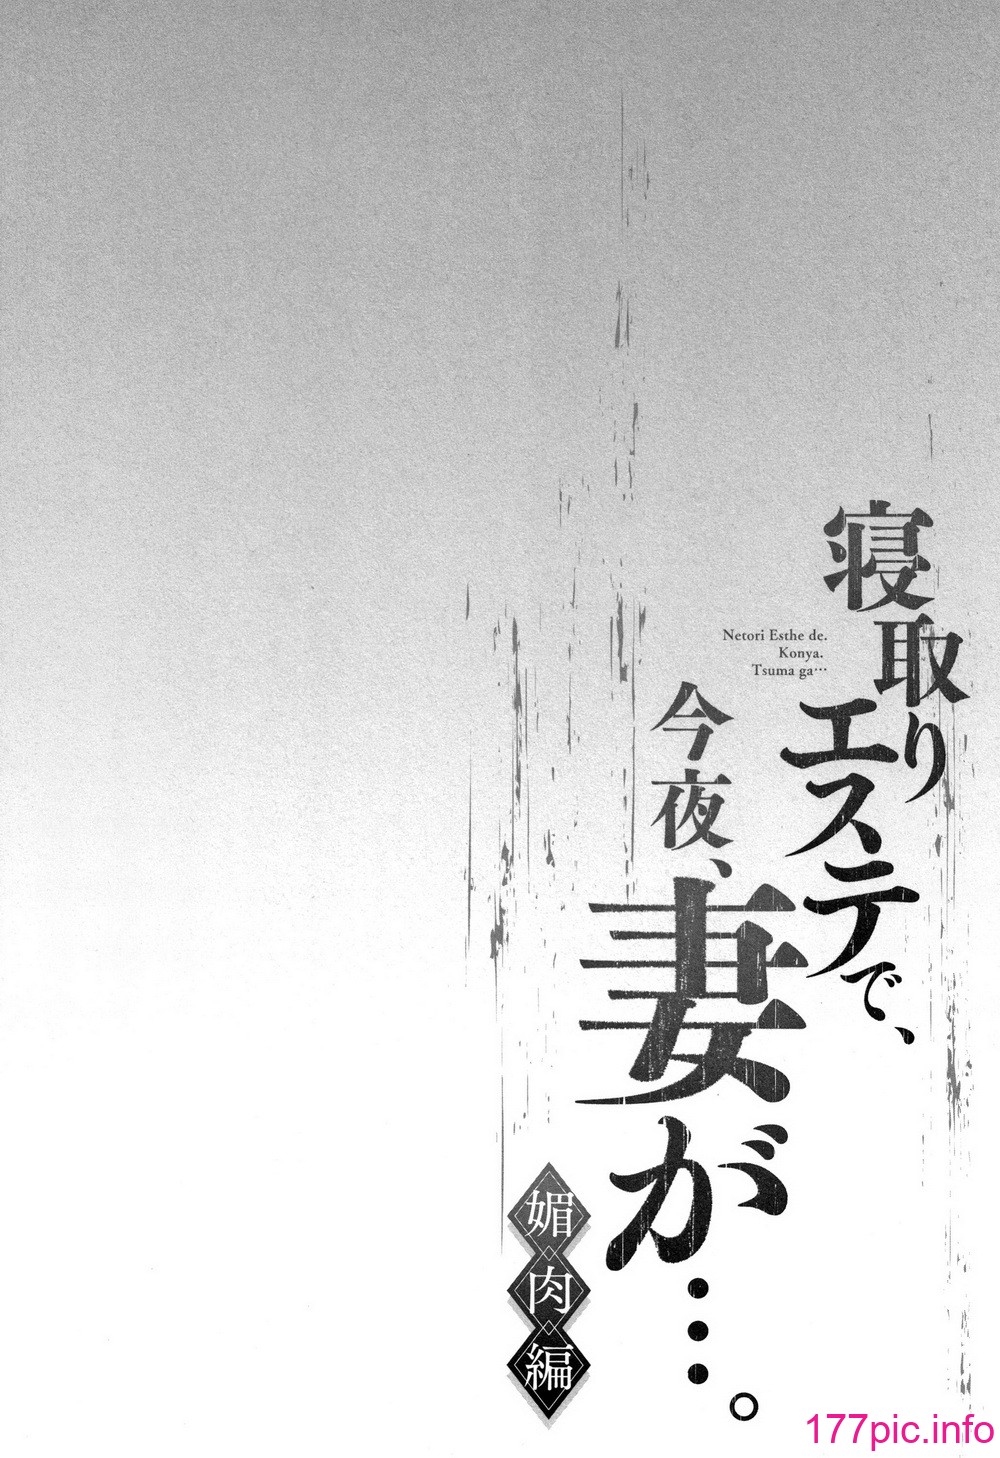 寝取り
エステで、
Netori Esthe de.
Konya.
Tsuma ga…
今夜、
妻が…。
媚肉編
177pic.info